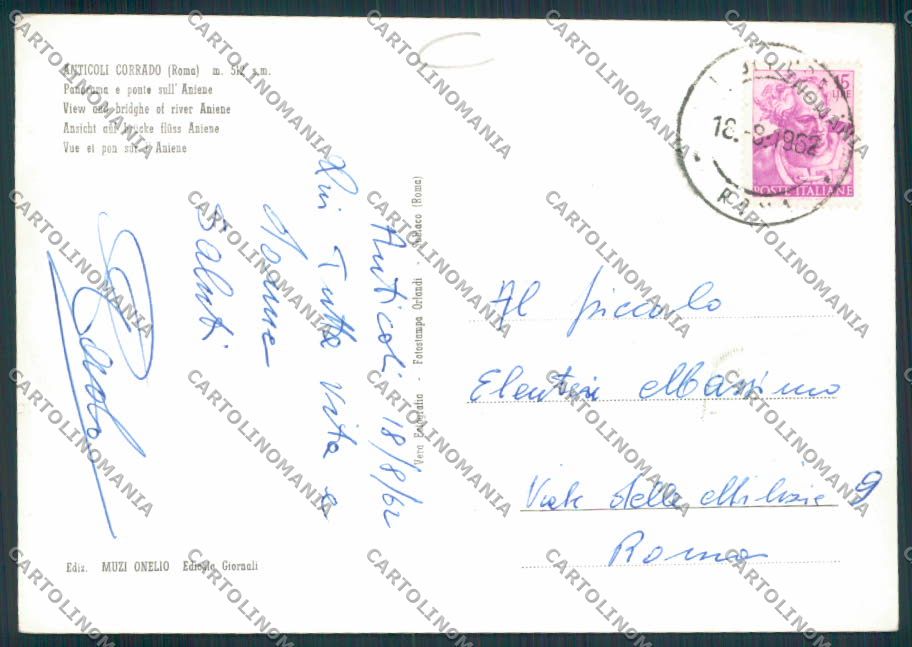 ANTICOLI CORRADO (Roma) m. 512 s.m.
Panorama e ponte sull' Aniene
View and bridghe of river Aniene
Ansicht auf brucke flüss Aniene
Vue et pon sur l' Aniene
Anticoli 18/8/62
Qui Tutta vita e
Saluti
Paolo
Vera Fotografia - Fotostampa Orlandi - Subiaco (Roma)
Ediz. MUZI ONELIO Edicola Giornali
15
LIRE
POSTE ITALIANE
18.-8.1962
ROMA
Al piccolo
Eleuteri Massimo
Viale delle Milizie 9
Roma
CARTOLINOMANIA